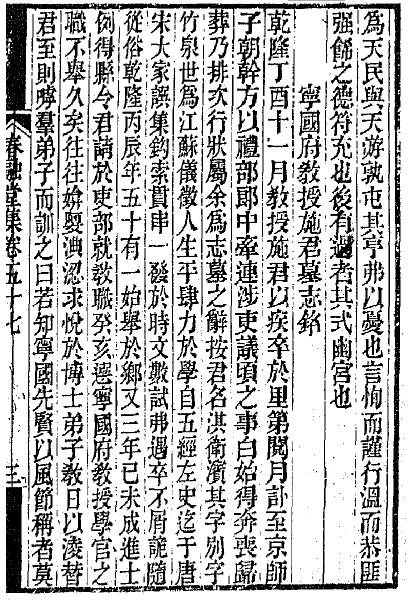 爲天民與天游就屯其亨弗以憂也言恂而謹行溫而恭匪
强飭之德符充也後有過者其式幽宮也
寧國府教授施君墓志銘
乾隆丁酉十一月教授施君以疾卒於里第閱月訃至京師
子朝幹方以禮部郎中牽連涉吏議頃之事白始得奔喪歸
葬乃排次行狀屬余爲志墓之辭按君名淇衛濱其字別字
竹泉世爲江蘇儀徵人生平肆力於學自五經左史迄于唐
宋大家譔集鉤索貫串一發於時文數試弗遇卒不屑詭隨
從俗乾隆丙辰年五十有一始舉於鄉又三年己未成進士
例得縣令君請於吏部就教職癸亥選寧國府教授學官之
職不舉久矣往往媕娿淟涊求悅於博士弟子教日以淩替
君至則嘑羣弟子而訓之曰若知寧國先賢以風節稱者莫
春融堂集卷五十七
三